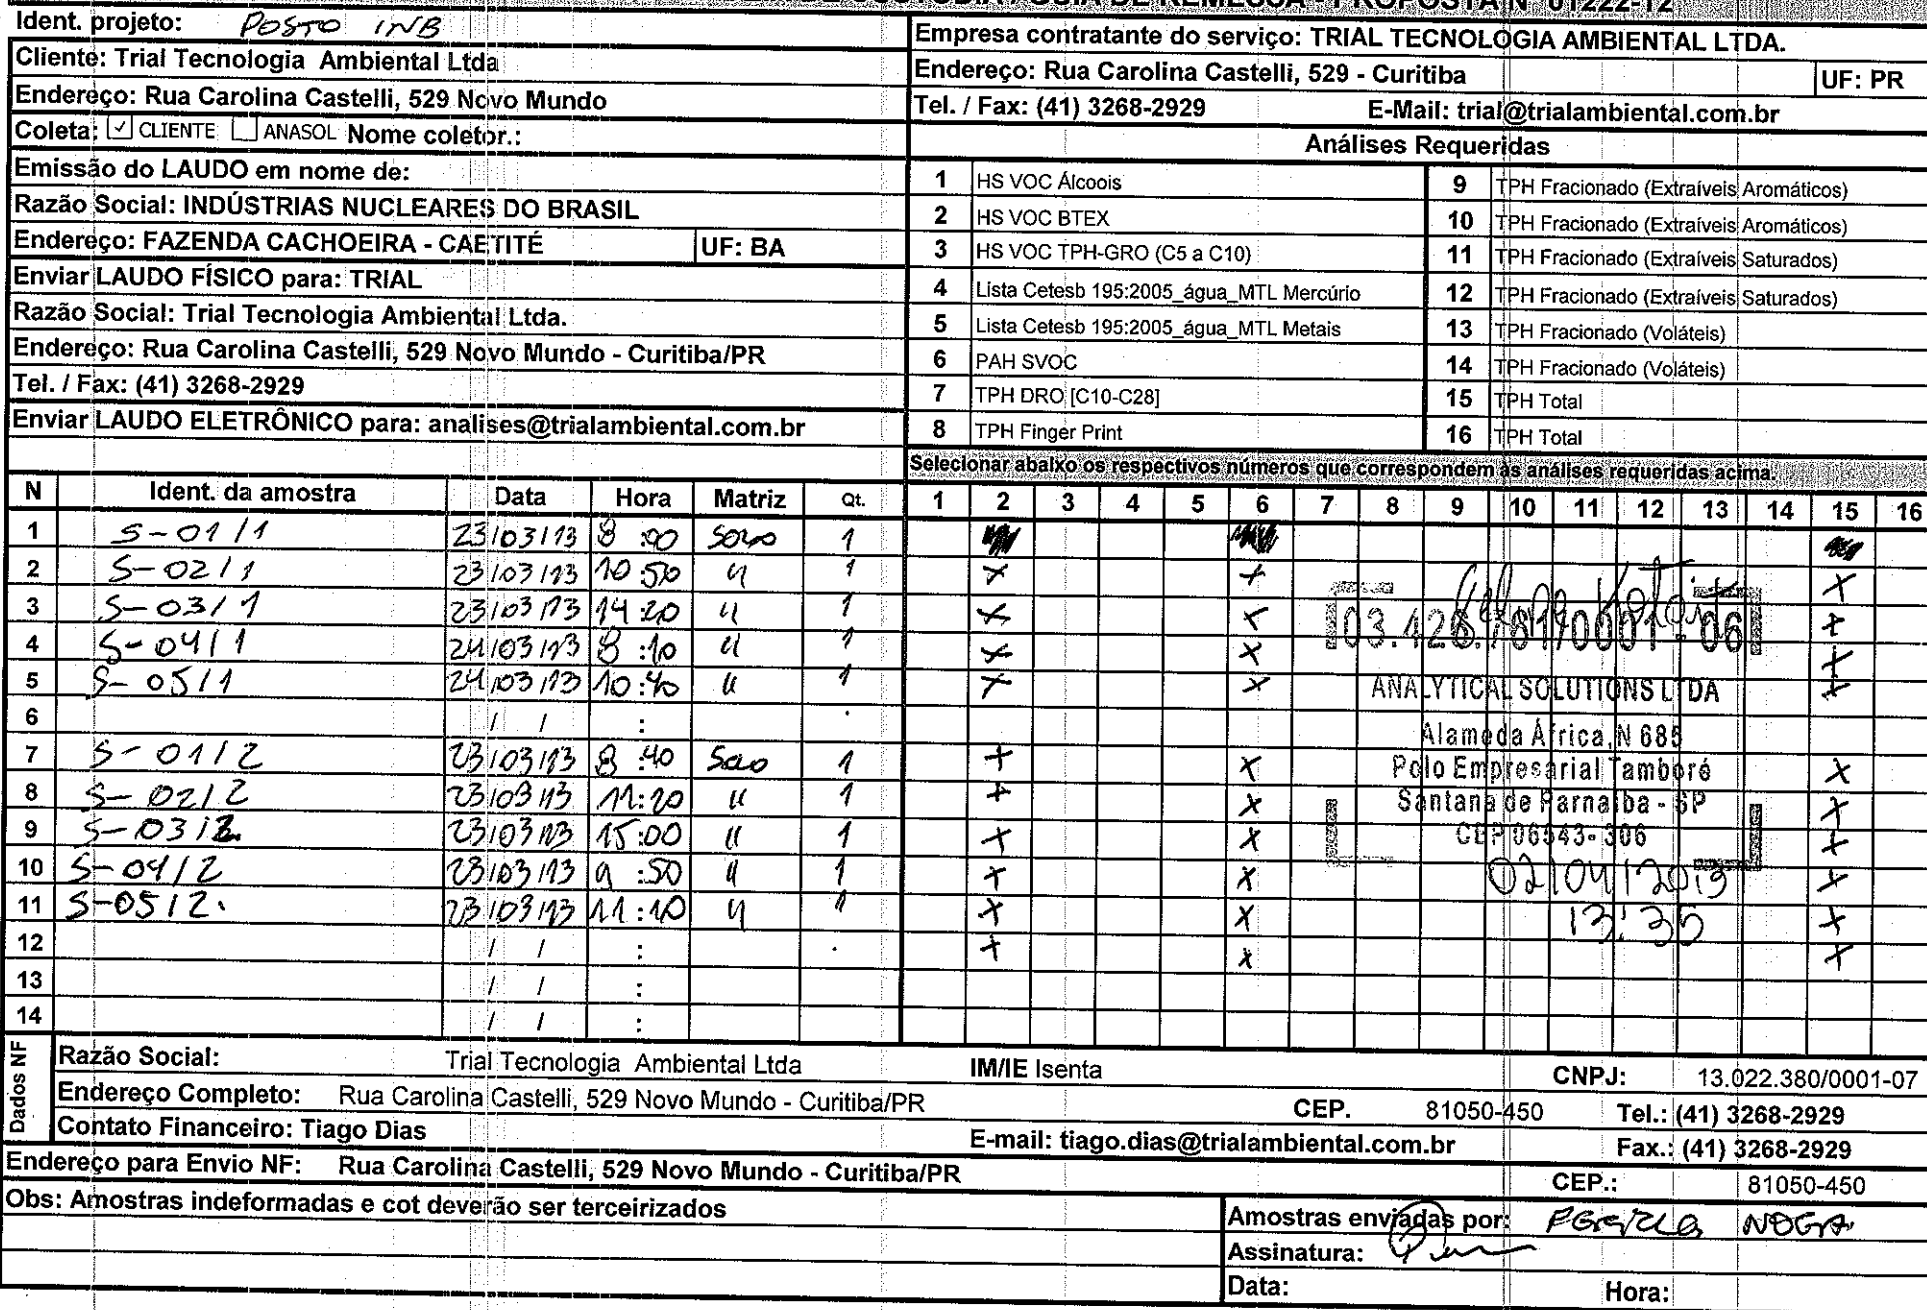 CUSTÓDIA / GUIA DE REMESSA - PROPOSTA Nº 01222-12
Ident. projeto: POSTO INB
Cliente: Trial Tecnologia Ambiental Ltda
Endereço: Rua Carolina Castelli, 529 Novo Mundo
Coleta: ☑ CLIENTE ☐ ANASOL Nome coletor.:
Emissão do LAUDO em nome de:
Razão Social: INDÚSTRIAS NUCLEARES DO BRASIL
Endereço: FAZENDA CACHOEIRA - CAETITÉ UF: BA
Enviar LAUDO FÍSICO para: TRIAL
Razão Social: Trial Tecnologia Ambiental Ltda.
Endereço: Rua Carolina Castelli, 529 Novo Mundo - Curitiba/PR
Tel. / Fax: (41) 3268-2929
Enviar LAUDO ELETRÔNICO para: analises@trialambiental.com.br
Empresa contratante do serviço: TRIAL TECNOLOGIA AMBIENTAL LTDA.
Endereço: Rua Carolina Castelli, 529 - Curitiba UF: PR
Tel. / Fax: (41) 3268-2929 E-Mail: trial@trialambiental.com.br
Análises Requeridas
1 HS VOC Álcoois 9 TPH Fracionado (Extraíveis Aromáticos)
2 HS VOC BTEX 10 TPH Fracionado (Extraíveis Aromáticos)
3 HS VOC TPH-GRO (C5 a C10) 11 TPH Fracionado (Extraíveis Saturados)
4 Lista Cetesb 195:2005_água_MTL Mercúrio 12 TPH Fracionado (Extraíveis Saturados)
5 Lista Cetesb 195:2005_água_MTL Metais 13 TPH Fracionado (Voláteis)
6 PAH SVOC 14 TPH Fracionado (Voláteis)
7 TPH DRO [C10-C28] 15 TPH Total
8 TPH Finger Print 16 TPH Total
Selecionar abaixo os respectivos números que correspondem as análises requeridas acima.
N Ident. da amostra Data Hora Matriz Qt. 1 2 3 4 5 6 7 8 9 10 11 12 13 14 15 16
1 S-01/1 23/03/13 8:00 Solo 1
2 S-02/1 23/03/13 10:50 " 1 X X X
3 S-03/1 23/03/13 14:20 " 1 X X X
4 S-04/1 24/03/13 8:10 " 1 X X X
5 S-05/1 24/03/13 10:40 " 1 X X X
6 / / :
7 S-01/2 23/03/13 8:40 Solo 1 X X X
8 S-02/2 23/03/13 11:20 " 1 X X X
9 S-03/2 23/03/13 15:00 " 1 X X X
10 S-04/2 23/03/13 9:50 " 1 X X X
11 S-05/2. 23/03/13 11:10 " 1 X X X
12 / / : X X X
13 / / :
14 / / :
ANALYTICAL SOLUTIONS LTDA
Alameda África, N 685
Polo Empresarial Tamboré
Santana de Parnaiba - SP
CEP 06543-306
02/04/2013
13:35
Dados NF
Razão Social: Trial Tecnologia Ambiental Ltda IM/IE Isenta CNPJ: 13.022.380/0001-07
Endereço Completo: Rua Carolina Castelli, 529 Novo Mundo - Curitiba/PR CEP. 81050-450 Tel.: (41) 3268-2929
Contato Financeiro: Tiago Dias E-mail: tiago.dias@trialambiental.com.br Fax.: (41) 3268-2929
Endereço para Envio NF: Rua Carolina Castelli, 529 Novo Mundo - Curitiba/PR CEP.: 81050-450
Obs: Amostras indeformadas e cot deverão ser terceirizados
Amostras enviadas por:
Assinatura:
Data: Hora: